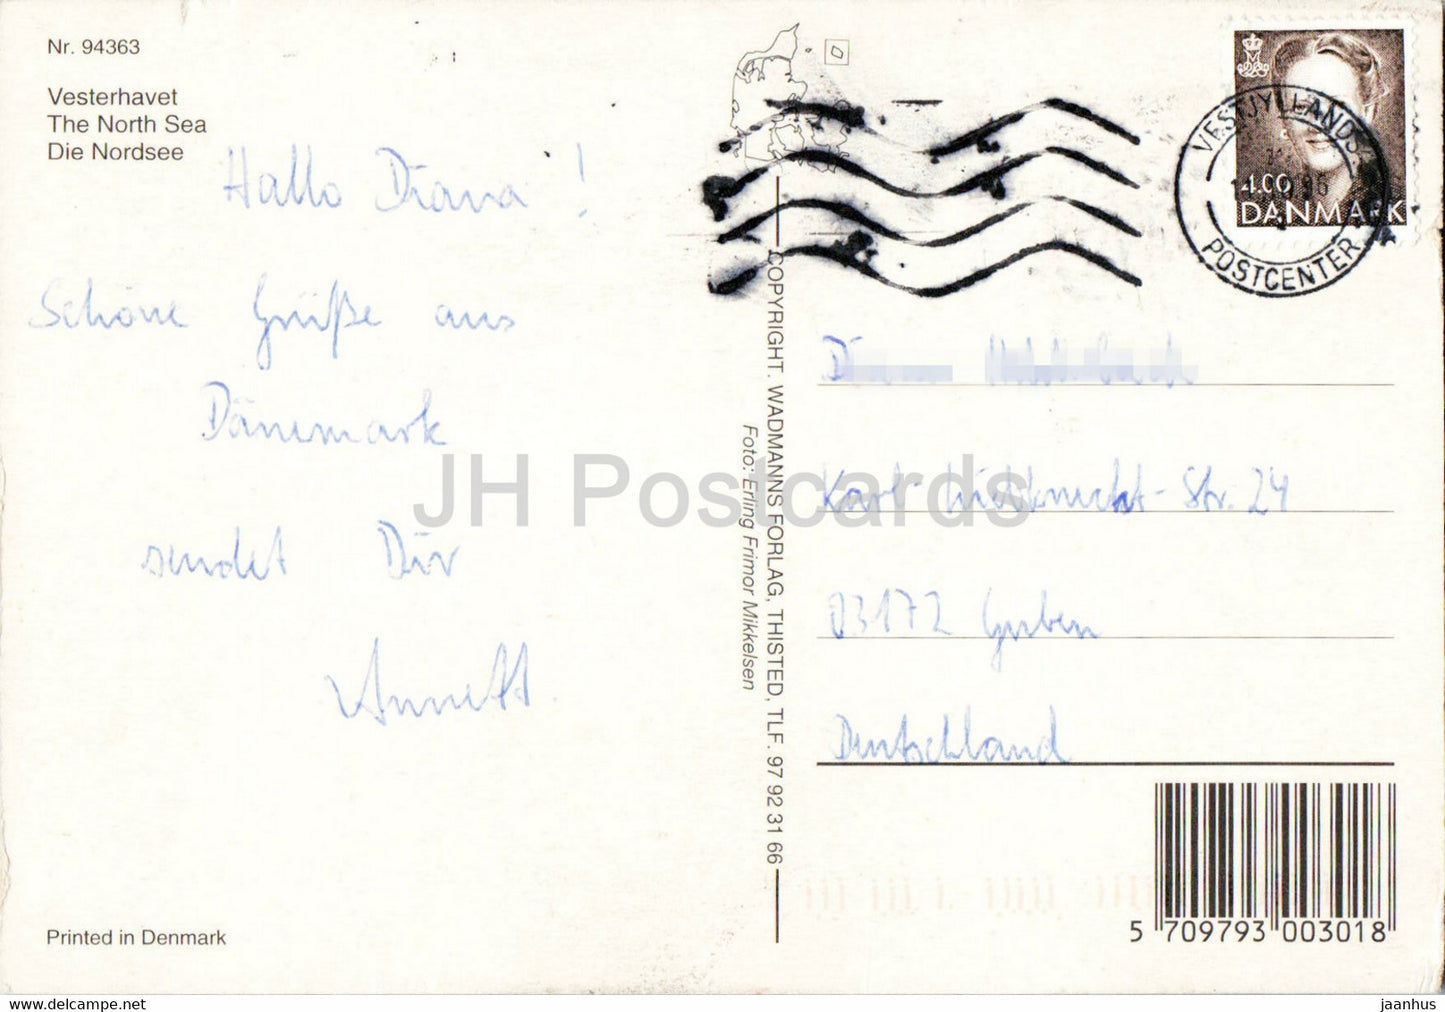 Nr. 94363
Vesterhavet
The North Sea
Die Nordsee
Hallo Diana!
Schöne Grüße aus
Dänemark
sendet Dir
Annett.
Printed in Denmark
COPYRIGHT. WADMANNS FORLAG, THISTED, TLF. 97 92 31 66
Foto: Erling Frimor Mikkelsen
VESTJYLLANDS
POSTCENTER
4.00
DANMARK
Karl-Liebknecht-Str. 24
03172 Guben
Deutschland
5 709793 003018
JH Postcards
jaanhus